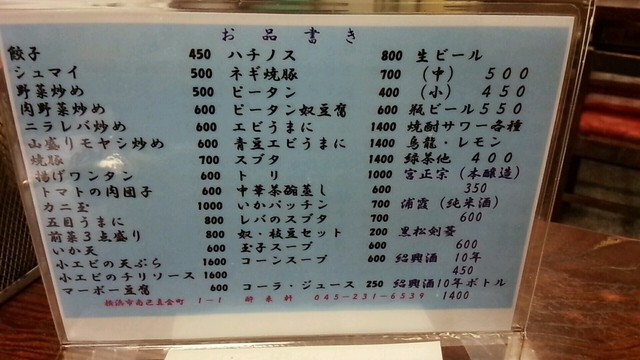 お品書き
餃子 450
シュマイ 500
野菜炒め 500
肉野菜炒め 600
ニラレバ炒め 600
山盛りモヤシ炒め 600
焼豚 700
揚げワンタン 600
トマトの肉団子 600
カニ玉 1000
五目うまに 800
前菜3点盛り 800
いか天 600
小エビの天ぷら 1600
小エビのチリソース 1600
マーボー豆腐 600
ハチノス 800
ネギ焼豚 700
ピータン 400
ピータン奴豆腐 600
エビうまに 1400
青豆エビうまに 1400
スブタ 1400
トリ 1000
中華茶碗蒸し 600
いかパッチン 700
レバのスブタ 700
奴・枝豆セット 200
玉子スープ 600
コーンスープ 600
コーラ・ジュース 250
生ビール
(中) 500
(小) 450
瓶ビール550
焼酎サワー各種
烏龍・レモン
緑茶他 400
宮正宗(本醸造)
350
浦霞(純米酒)
600
黒松剣菱
600
紹興酒 10年
450
紹興酒10年ボトル
1400
横浜市南区真金町 1-1 酔来軒 045-231-6539